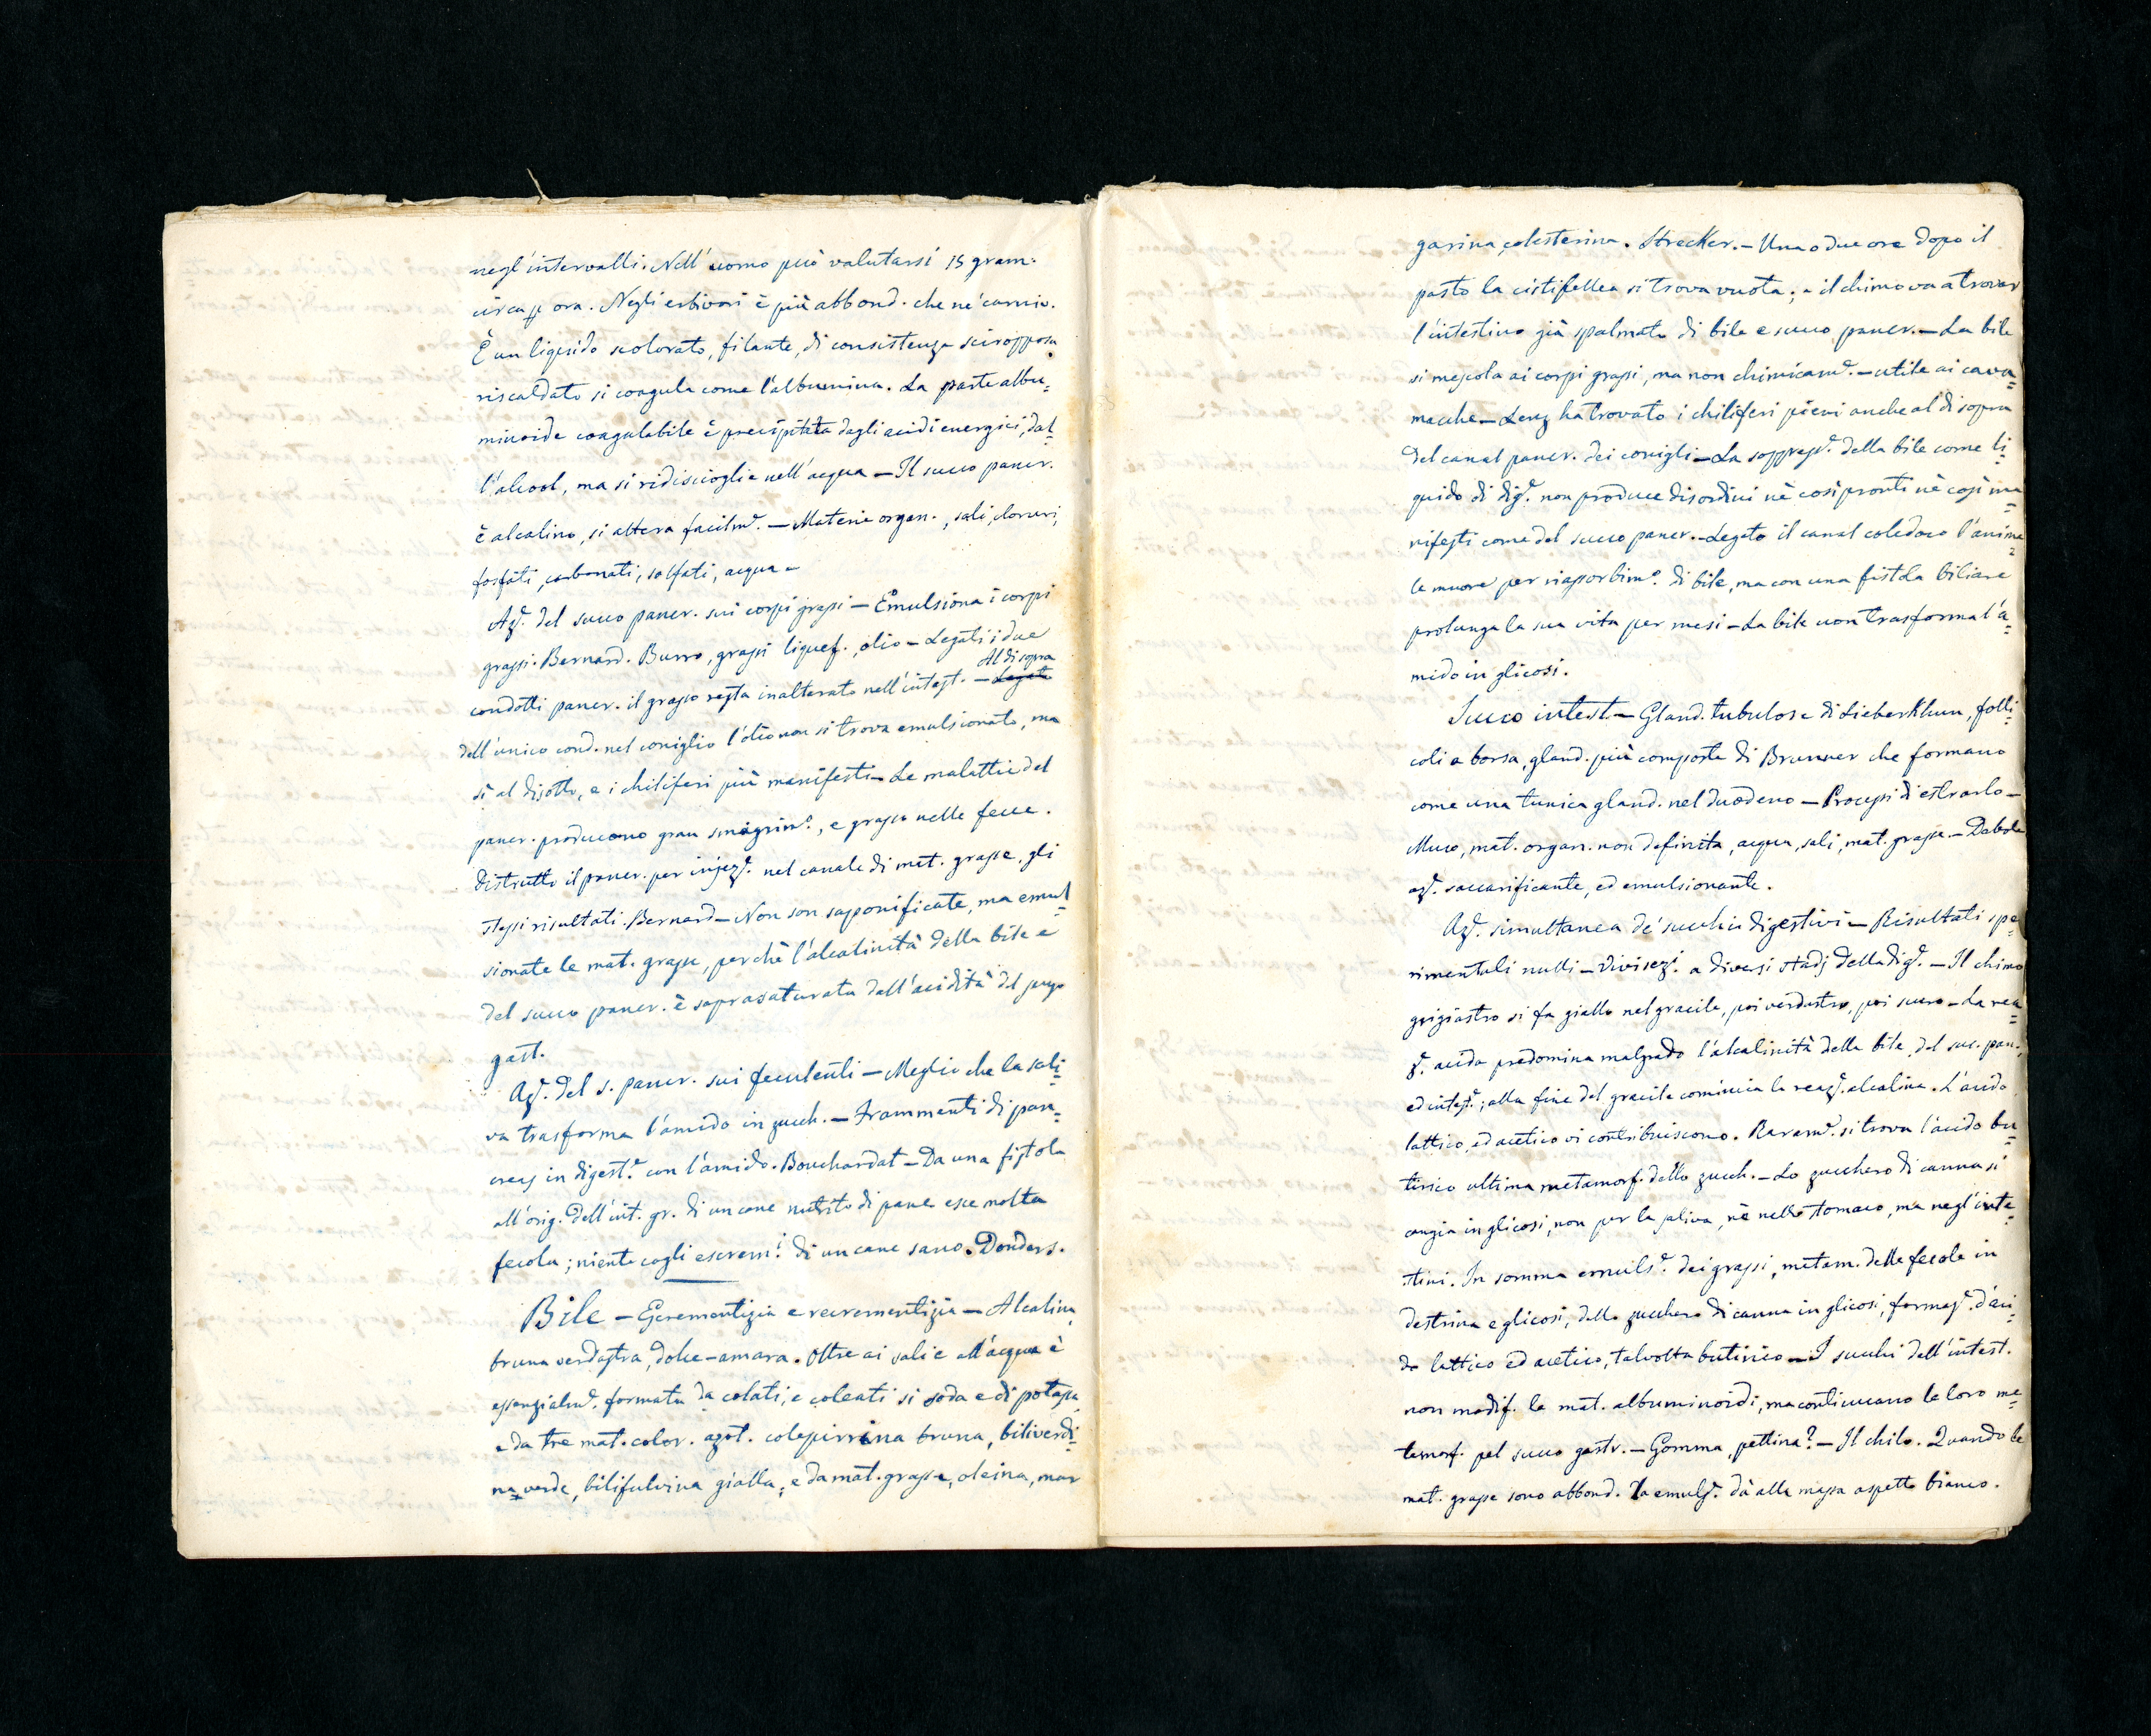 negl'intervalli. Nell'uomo può valutarsi 15 gram.
circa p ora. Negli erbivori è più abbond. che ne' carniv.
È un liquido scolorato, filante, di consistenza sciropposa
riscaldato si coagula come l'albumina. La parte albu=
minoide coagulabile è precipitata dagli acidi energici, dal=
l'alcool, ma si ridiscioglie nell'acqua — Il succo pancr.
è alcalino, si altera facilme. — Materie organ., sali, cloruri,
fosfati, carbonati, solfati, acqua —
Aze. del succo pancr. sui corpi grassi — Emulsiona i corpi
grassi. Bernard. Burro, grassi liquef., olio — Legati i due
condotti pancr. il grasso resta inalterato nell'intest. — Legato Al di sopra
dell'unico cond. nel coniglio l'olio non si trova emulsionato, ma
sì al disotto, e i chiliferi più manifesti — Le malattie del
pancr. producono gran smagrimo., e grasso nelle fecce.
Distrutto il pancr. per injeze. nel canale di mat. grasse, gli
stessi risultati. Bernard — Non son saponificate, ma emul=
sionate le mat. grasse, perchè l'alcalinità della bile e
del succo pancr. è soprasaturata dall'acidità del sugo
gast.
Aze. del s. pancr. sui feculenti — Meglio che la sali=
va trasforma l'amido in zucch. — Frammenti di pan=
creas in digeste. con l'amido. Bouchardat — Da una fistola
all'orig. dell'int. gr. di un cane nutrito di pane esce molta
fecola; niente cogli escremi. di un cane sano. Donders.
Bile — Escrementizia e recrementizia — Alcalina,
bruna verdastra, dolce-amara. Oltre ai sali e all'acqua è
essenzialme. formata da colati, e coleati si soda e di potassa,
e da tre mat. color. azot. colepirrina bruna, biliverdi=
na verde, bilifulvina gialla; e da mat. grasse, oleina, mar
garina, colesterina. Strecker. — Una o due ore dopo il
pasto la cistifellea si trova vuota; e il chimo va a trovar
l'intestino già spalmato di bile e succo pancr. — La bile
si mescola ai corpi grassi, ma non chimicame. — utile ai cava=
macchie — Lenz ha trovato i chiliferi pieni anche al di sopra
del canal pancr. dei conigli — La soppresse. della bile come li=
quido di dige. non produce disordini nè così pronti nè così ma=
nifesti come del succo pancr. — Legato il canal coledoco l'anima=
le muore per riassorbimo. di bile, ma con una fistola biliare
prolunga la sua vita per mesi — La bile non trasforma l'a=
mido in glicosi.
Succo intest. — Gland. tubulose di Lieberkhun, folli=
coli a borsa, gland. più composte di Brunner che formano
come una tunica gland. nel duodeno — Processi di estrarlo —
Muco, mat. organ. non definita, acqua, sali, mat. grasse. — Debole
aze. saccarificante, ed emulsionante.
Aze. simultanea de' succhi digestivi — Risultati spe=
rimentali nulli — Vivisezi. a diversi stadj della dige. — Il chimo
grigiastro si fa giallo nel gracile, poi verdastro, poi scuro — La rea=
ze. acida predomina malgrado l'alcalinità della bile, del suc. pan.,
ed inteste.; alla fine del gracile comincia la reaze. alcalina. L'acido
lattico, ed acetico vi contribuiscono. Rarame. si trova l'acido bu=
tirico ultima metamorf. dello zucch. — Lo zucchero di canna si
cangia in glicosi, non per la saliva, nè nello stomaco, ma negl'inte=
stini. In somma emulse. dei grassi, metam. delle fecole in
destrina e glicosi, dello zucchero di canna in glicosi, formaze. d'aci=
do lattico ed acetico, talvolta butirico — I succhi dell'intest.
non modif. le mat. albuminoidi, ma continuano le loro me=
tamorf. pel succo gastr. — Gomma, pettina? — Il chilo. Quando le
mat. grasse sono abbond. la emulse. dà alla massa aspetto bianco.